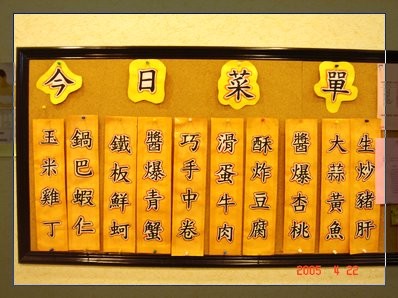 今日菜單
生炒豬肝
大蒜黃魚
醬爆杏桃
酥炸豆腐
滑蛋牛肉
巧手中卷
醬爆青蟹
鐵板鮮蚵
鍋巴蝦仁
玉米雞丁
2005 4 22